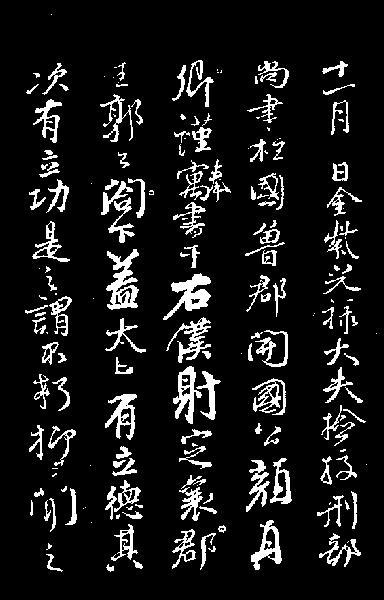 十一月 日金紫光祿大夫檢挍刑部
尚書柱國魯郡開國公顏真
卿謹寓奉書于右僕射定襄郡
王郭公閤下蓋太上有立德其
次有立功是之謂不朽抑又聞之